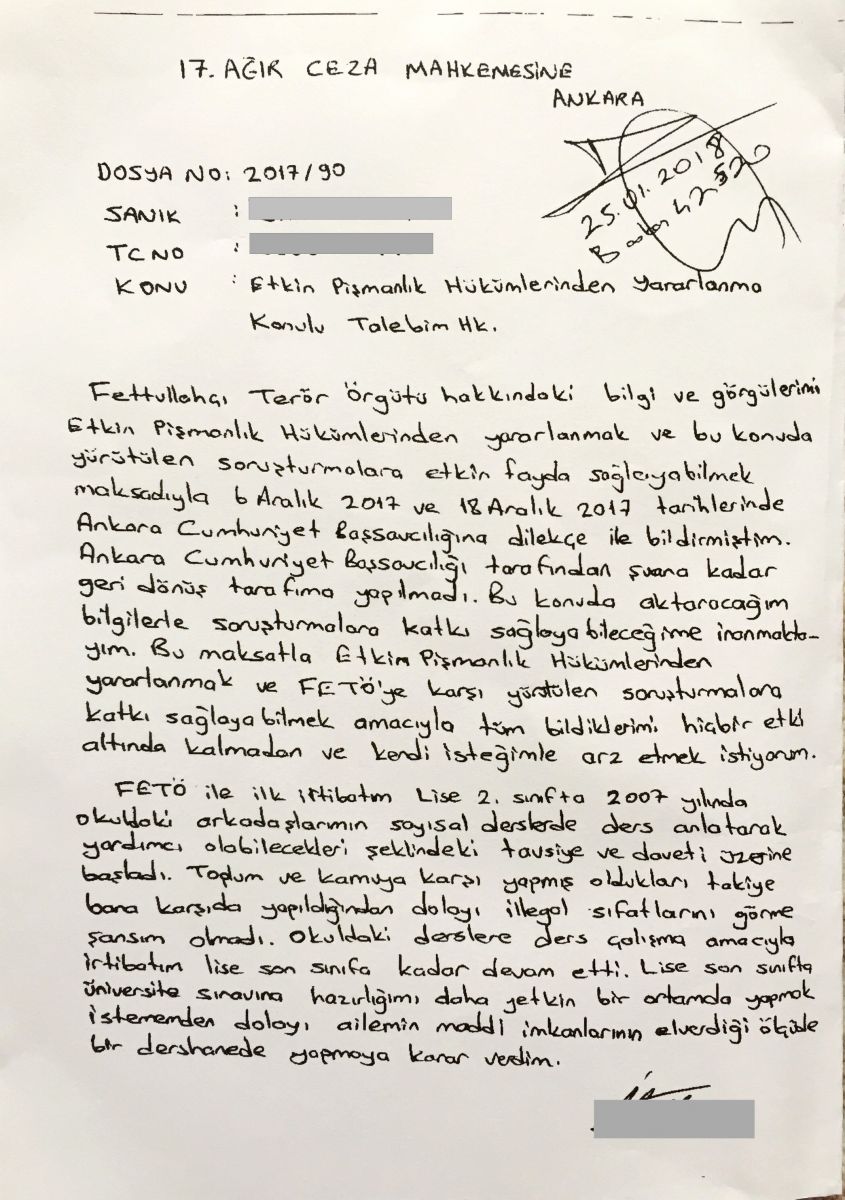 17. AĞIR CEZA MAHKEMESİNE
ANKARA
25.01.2018
42520
DOSYA NO: 2017/90
SANIK :
TC NO :
KONU : Etkin Pişmanlık Hükümlerinden Yararlanma
Konulu Talebim Hk.
Fettullahçı Terör Örgütü hakkındaki bilgi ve görgülerimi
Etkin Pişmanlık Hükümlerinden yararlanmak ve bu konuda
yürütülen soruşturmalara etkin fayda sağlayabilmek
maksadıyla 6 Aralık 2017 ve 18 Aralık 2017 tarihlerinde
Ankara Cumhuriyet Başsavcılığına dilekçe ile bildirmiştim.
Ankara Cumhuriyet Başsavcılığı tarafından şuana kadar
geri dönüş tarafıma yapılmadı. Bu konuda aktaracağım
bilgilerle soruşturmalara katkı sağlayabileceğime inanmakta-
yım. Bu maksatla Etkin Pişmanlık Hükümlerinden
yararlanmak ve FETÖ'ye karşı yürütülen soruşturmalara
katkı sağlayabilmek amacıyla tüm bildiklerimi hiçbir etki
altında kalmadan ve kendi isteğimle arz etmek istiyorum.
FETÖ ile ilk irtibatım Lise 2. sınıfta 2007 yılında
okuldaki arkadaşlarımın sayısal derslerde ders anlatarak
yardımcı olabilecekleri şeklindeki tavsiye ve daveti üzerine
başladı. Toplum ve kamuya karşı yapmış oldukları takiye
bana karşıda yapıldığından dolayı illegal sıfatlarını görme
şansım olmadı. Okuldaki derslere ders çalışma amacıyla
irtibatım lise son sınıfa kadar devam etti. Lise son sınıfta
üniversite sınavına hazırlığımı daha yetkin bir ortamda yapmak
istememden dolayı ailemin maddi imkanlarının elverdiği ölçüde
bir dershanede yapmaya karar verdim.